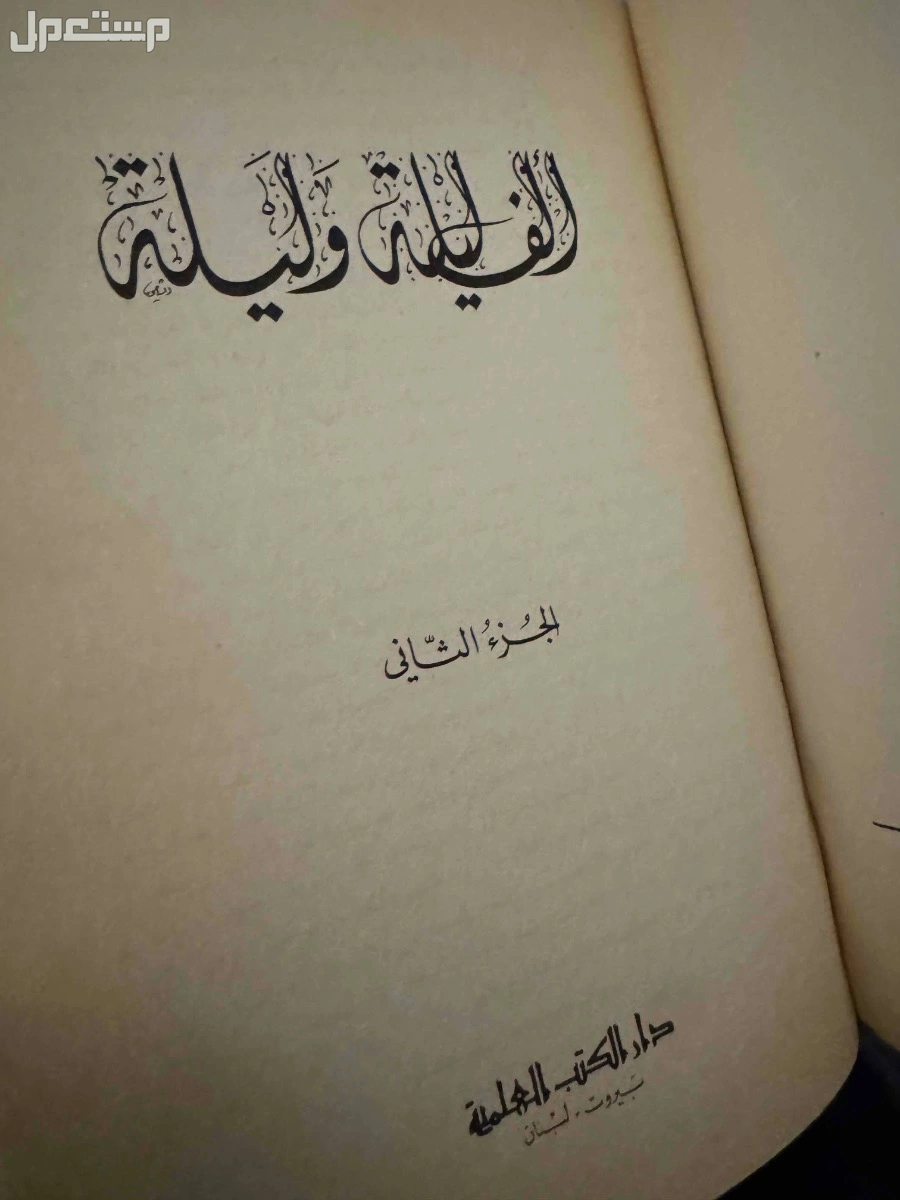 مستعمل
ألف ليلة وَليَلة
الجُزءُ الثَّاني
دار الكتب العلمية
بَيروت - لبْنان